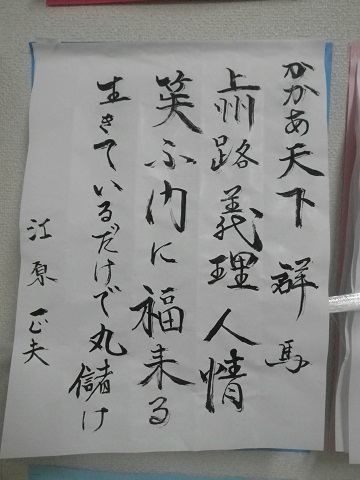 かかあ天下群馬
上州路義理人情
笑ふ門に福来る
生きているだけで丸儲け
江原正夫